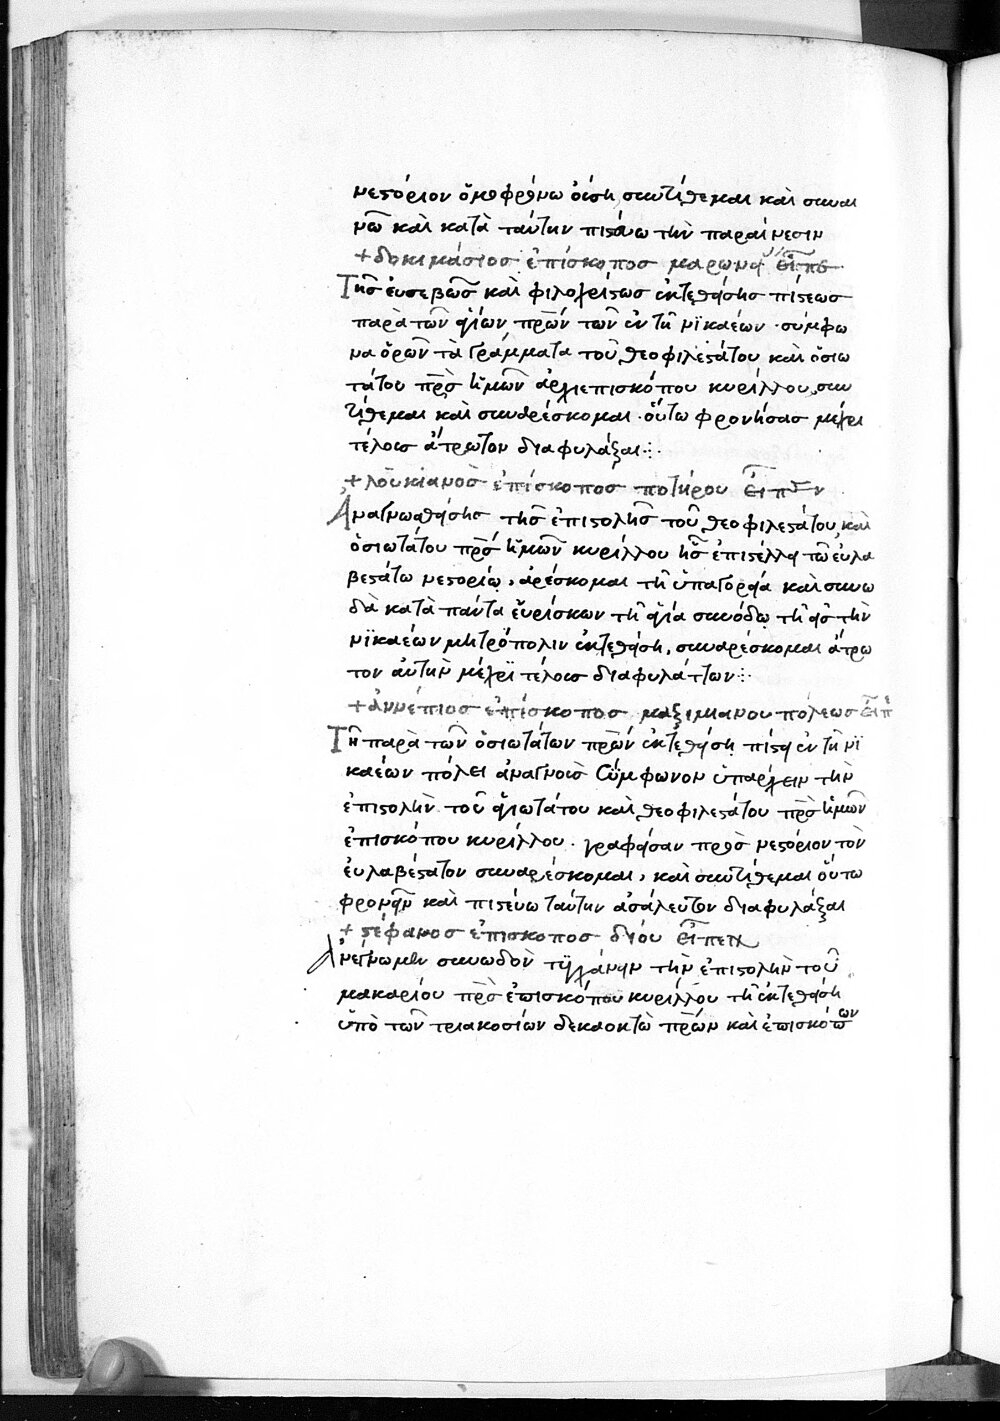 νεστόριον ὁμοφρόνω οὔσῃ, συντίθεμαι καὶ συναι
νῶ καὶ κατὰ ταύτην πιστεύω τὴν παραίνεσιν
+ δοκιμάσιος ἐπίσκοπος μαρωνεί εἶπε
Τῆς εὐσεβῶς καὶ φιλοχρίστως ἐκτεθείσης πίστεως
παρὰ τῶν ἁγίων πρῶν τῶν ἐν τῇ νϊκαέων · σύμφω
να ὁρῶν τὰ γράμματα τοῦ θεοφιλεστάτου καὶ ὁσιω
τάτου πρς ἡμῶν ἀρχιεπισκόπου κυρίλλου, συν
τίθεμαι καὶ συναρέσκομαι · οὕτω φρονήσας μέχρι
τέλους ἄτρωτον διαφυλάξαι ⁘
+ λουκιανὸς ἐπίσκοπος τοπήρου εἶπεν
Ἀναγνωσθείσης τῆς ἐπιστολῆς τοῦ θεοφιλεστάτου καὶ
ὁσιωτάτου πρς ἡμῶν κυρίλλου ἧς ἐπιστέλλει τῶ εὐλα
βεστάτω νεστορίῳ, ἀρέσκομαι τῇ ὑπαγορείᾳ καὶ συνω
δὰ κατὰ πάντα εὑρίσκων τῇ ἁγία συνόδῳ τῇ εἰς τὴν
νϊκαέων μητρόπολιν ἐκτεθείσῃ, συναρέσκομαι ἄτρω
τον αὐτὴν μέχρϊ τέλους διαφυλάττων ⁘
+ ἀννέπιος ἐπίσκοπος μαξιμιανουπόλεως εἶπ
Τῇ παρὰ τῶν ὁσιωτάτων πρῶν ἐκτεθείσῃ πίστει ἐν τῇ νϊ
καέων πόλει ἀναγνοὺς σύμφωνον ὑπάρχειν τὴν
ἐπιστολὴν τοῦ ἁγιωτάτου καὶ θεοφιλεστάτου πρς ἡμῶν
ἐπισκόπου κυρίλλου · γραφεῖσαν πρὸς νεστόριον τὸν
εὐλαβέστατον συναρέσκομαι, καὶ συντίθεμαι οὕτω
φρονεῖν καὶ πιστεύω ταύτην ἀσάλευτον διαφυλάξαι
+ στέφανος ἐπίσκοπος δίου εἶπεν
Ἀνέγνωμεν συνωδὸν τυγχάνειν τὴν ἐπιστολὴν τοῦ
μακαρίου πρς ἐπισκόπου κυρίλλου τῇ ἐκτεθείσῃ
ὑπὸ τῶν τριακοσίων δεκαοκτὼ πρῶν καὶ ἐπισκόπων